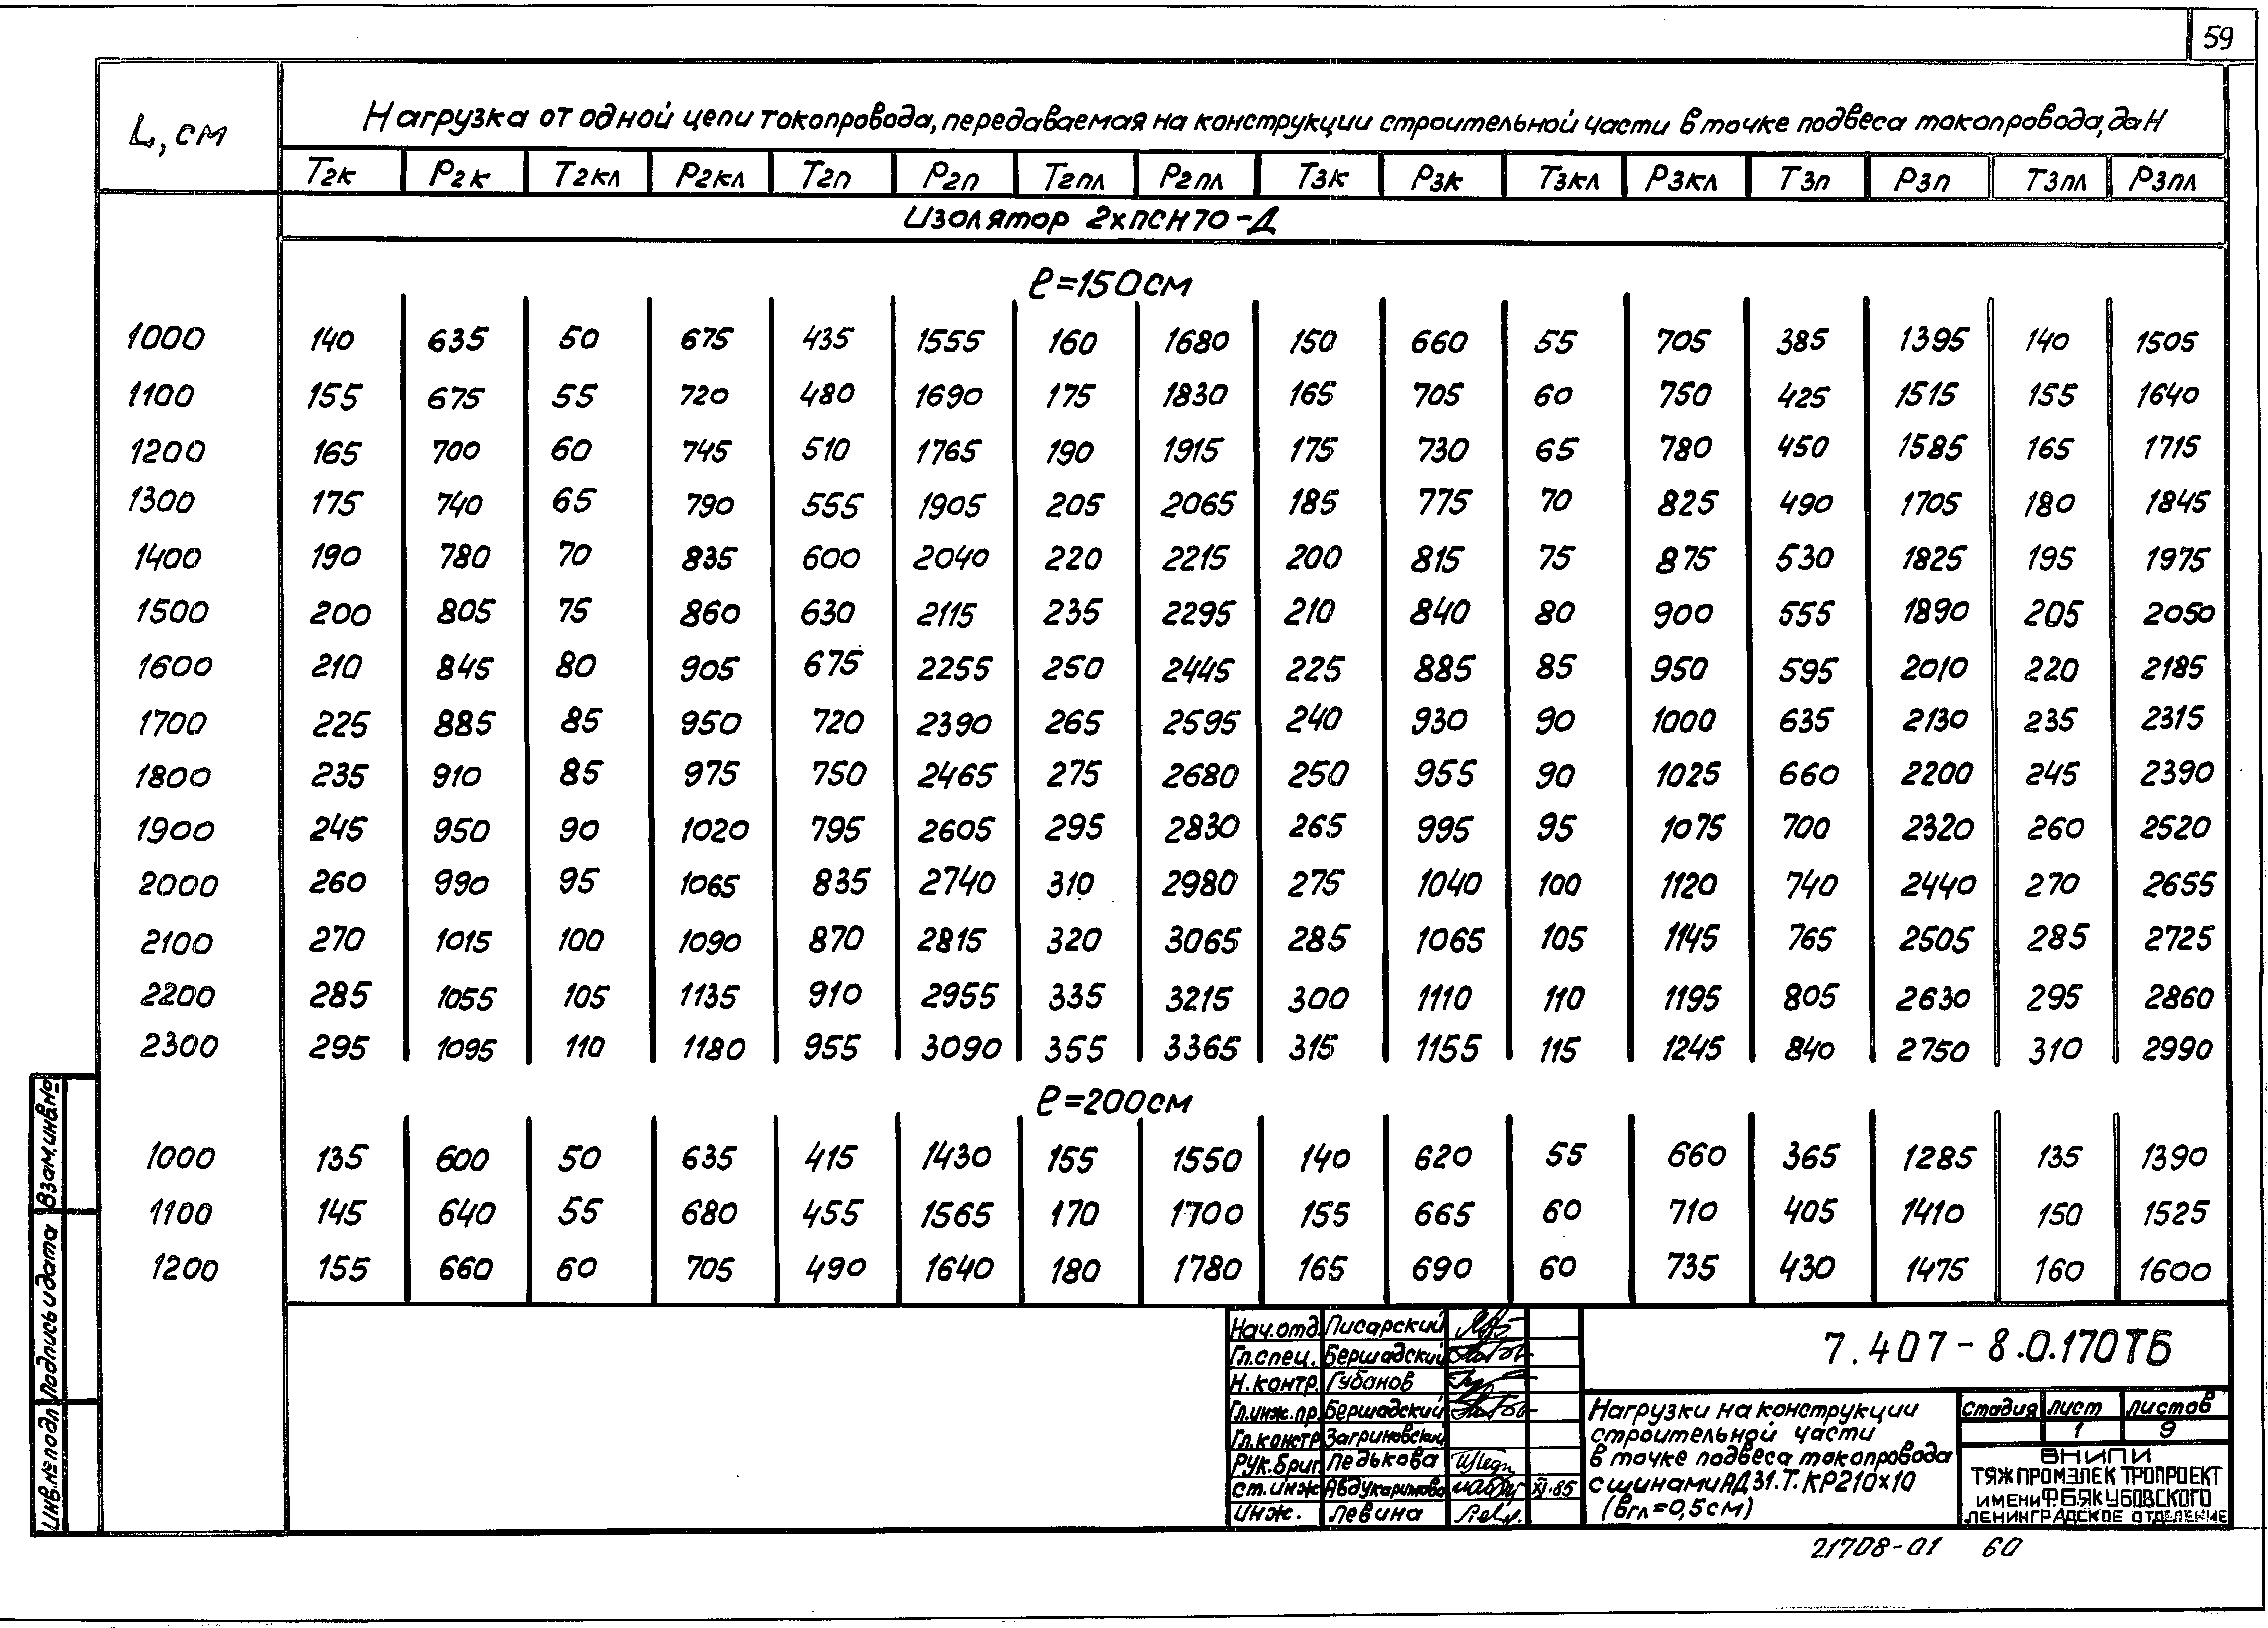 59
L, см
Нагрузка от одной цепи токопровода, передаваемая на конструкции строительной части в точке подвеса токопровода, даН
T2к P2к T2кл P2кл T2п P2п T2пл P2пл T3к P3к T3кл P3кл T3п P3п T3пл P3пл
Изолятор 2хПСН70-Д
ℓ=150см
1000 140 635 50 675 435 1555 160 1680 150 660 55 705 385 1395 140 1505
1100 155 675 55 720 480 1690 175 1830 165 705 60 750 425 1515 155 1640
1200 165 700 60 745 510 1765 190 1915 175 730 65 780 450 1585 165 1715
1300 175 740 65 790 555 1905 205 2065 185 775 70 825 490 1705 180 1845
1400 190 780 70 835 600 2040 220 2215 200 815 75 875 530 1825 195 1975
1500 200 805 75 860 630 2115 235 2295 210 840 80 900 555 1890 205 2050
1600 210 845 80 905 675 2255 250 2445 225 885 85 950 595 2010 220 2185
1700 225 885 85 950 720 2390 265 2595 240 930 90 1000 635 2130 235 2315
1800 235 910 85 975 750 2465 275 2680 250 955 90 1025 660 2200 245 2390
1900 245 950 90 1020 795 2605 295 2830 265 995 95 1075 700 2320 260 2520
2000 260 990 95 1065 835 2740 310 2980 275 1040 100 1120 740 2440 270 2655
2100 270 1015 100 1090 870 2815 320 3065 285 1065 105 1145 765 2505 285 2725
2200 285 1055 105 1135 910 2955 335 3215 300 1110 110 1195 805 2630 295 2860
2300 295 1095 110 1180 955 3090 355 3365 315 1155 115 1245 840 2750 310 2990
ℓ=200см
1000 135 600 50 635 415 1430 155 1550 140 620 55 660 365 1285 135 1390
1100 145 640 55 680 455 1565 170 1700 155 665 60 710 405 1410 150 1525
1200 155 660 60 705 490 1640 180 1780 165 690 60 735 430 1475 160 1600
Взам. инв.№
Подпись и дата
Инв.№ подл.
Нач.отд. Писарский
Гл.спец. Бершадский
Н.контр. Губанов
Гл.инж.пр. Бершадский
Гл.констр. Загриновский
Рук.бриг. Педькова
Ст.инж. Абдукаримова XI-85
Инж. Левина
7.407-8.0.170ТБ
Нагрузки на конструкции
строительной части
в точке подвеса токопровода
с шинами АД31.Т.КР210х10
(вгл=0,5см)
Стадия Лист Листов
1 9
ВНИПИ
ТЯЖПРОМЭЛЕКТРОПРОЕКТ
ИМЕНИ Ф.Б.ЯКУБОВСКОГО
ЛЕНИНГРАДСКОЕ ОТДЕЛЕНИЕ
21708-01 60